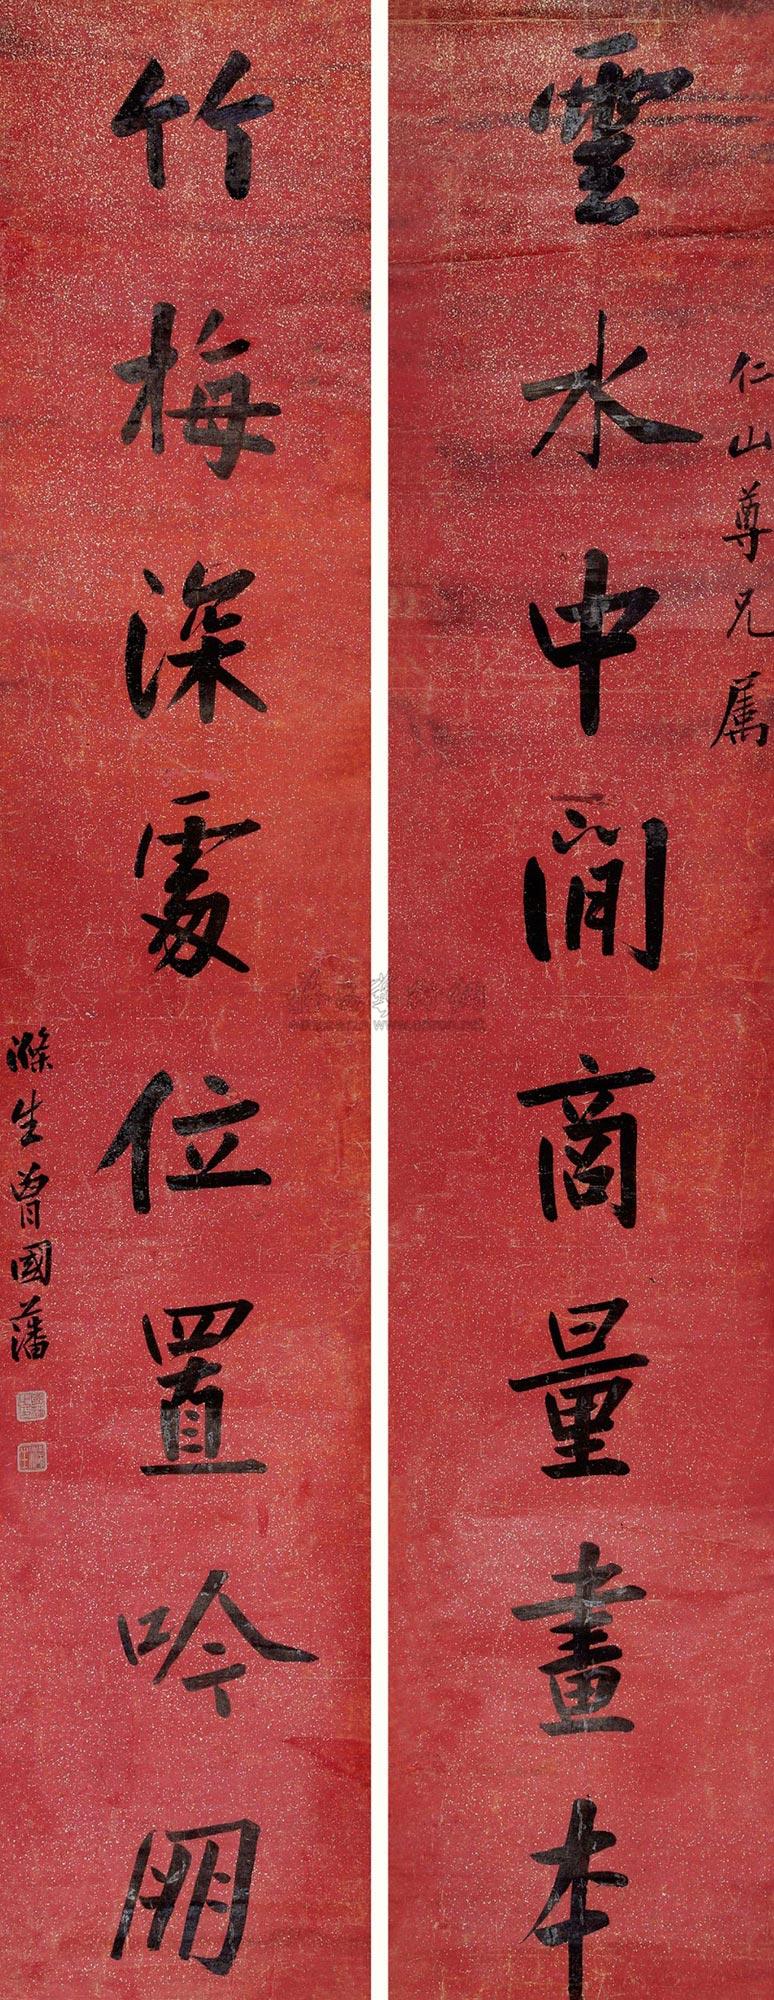 仁山尊兄属
雲水中間商量畫本
竹梅深處位置吟朋
滌生曾國藩